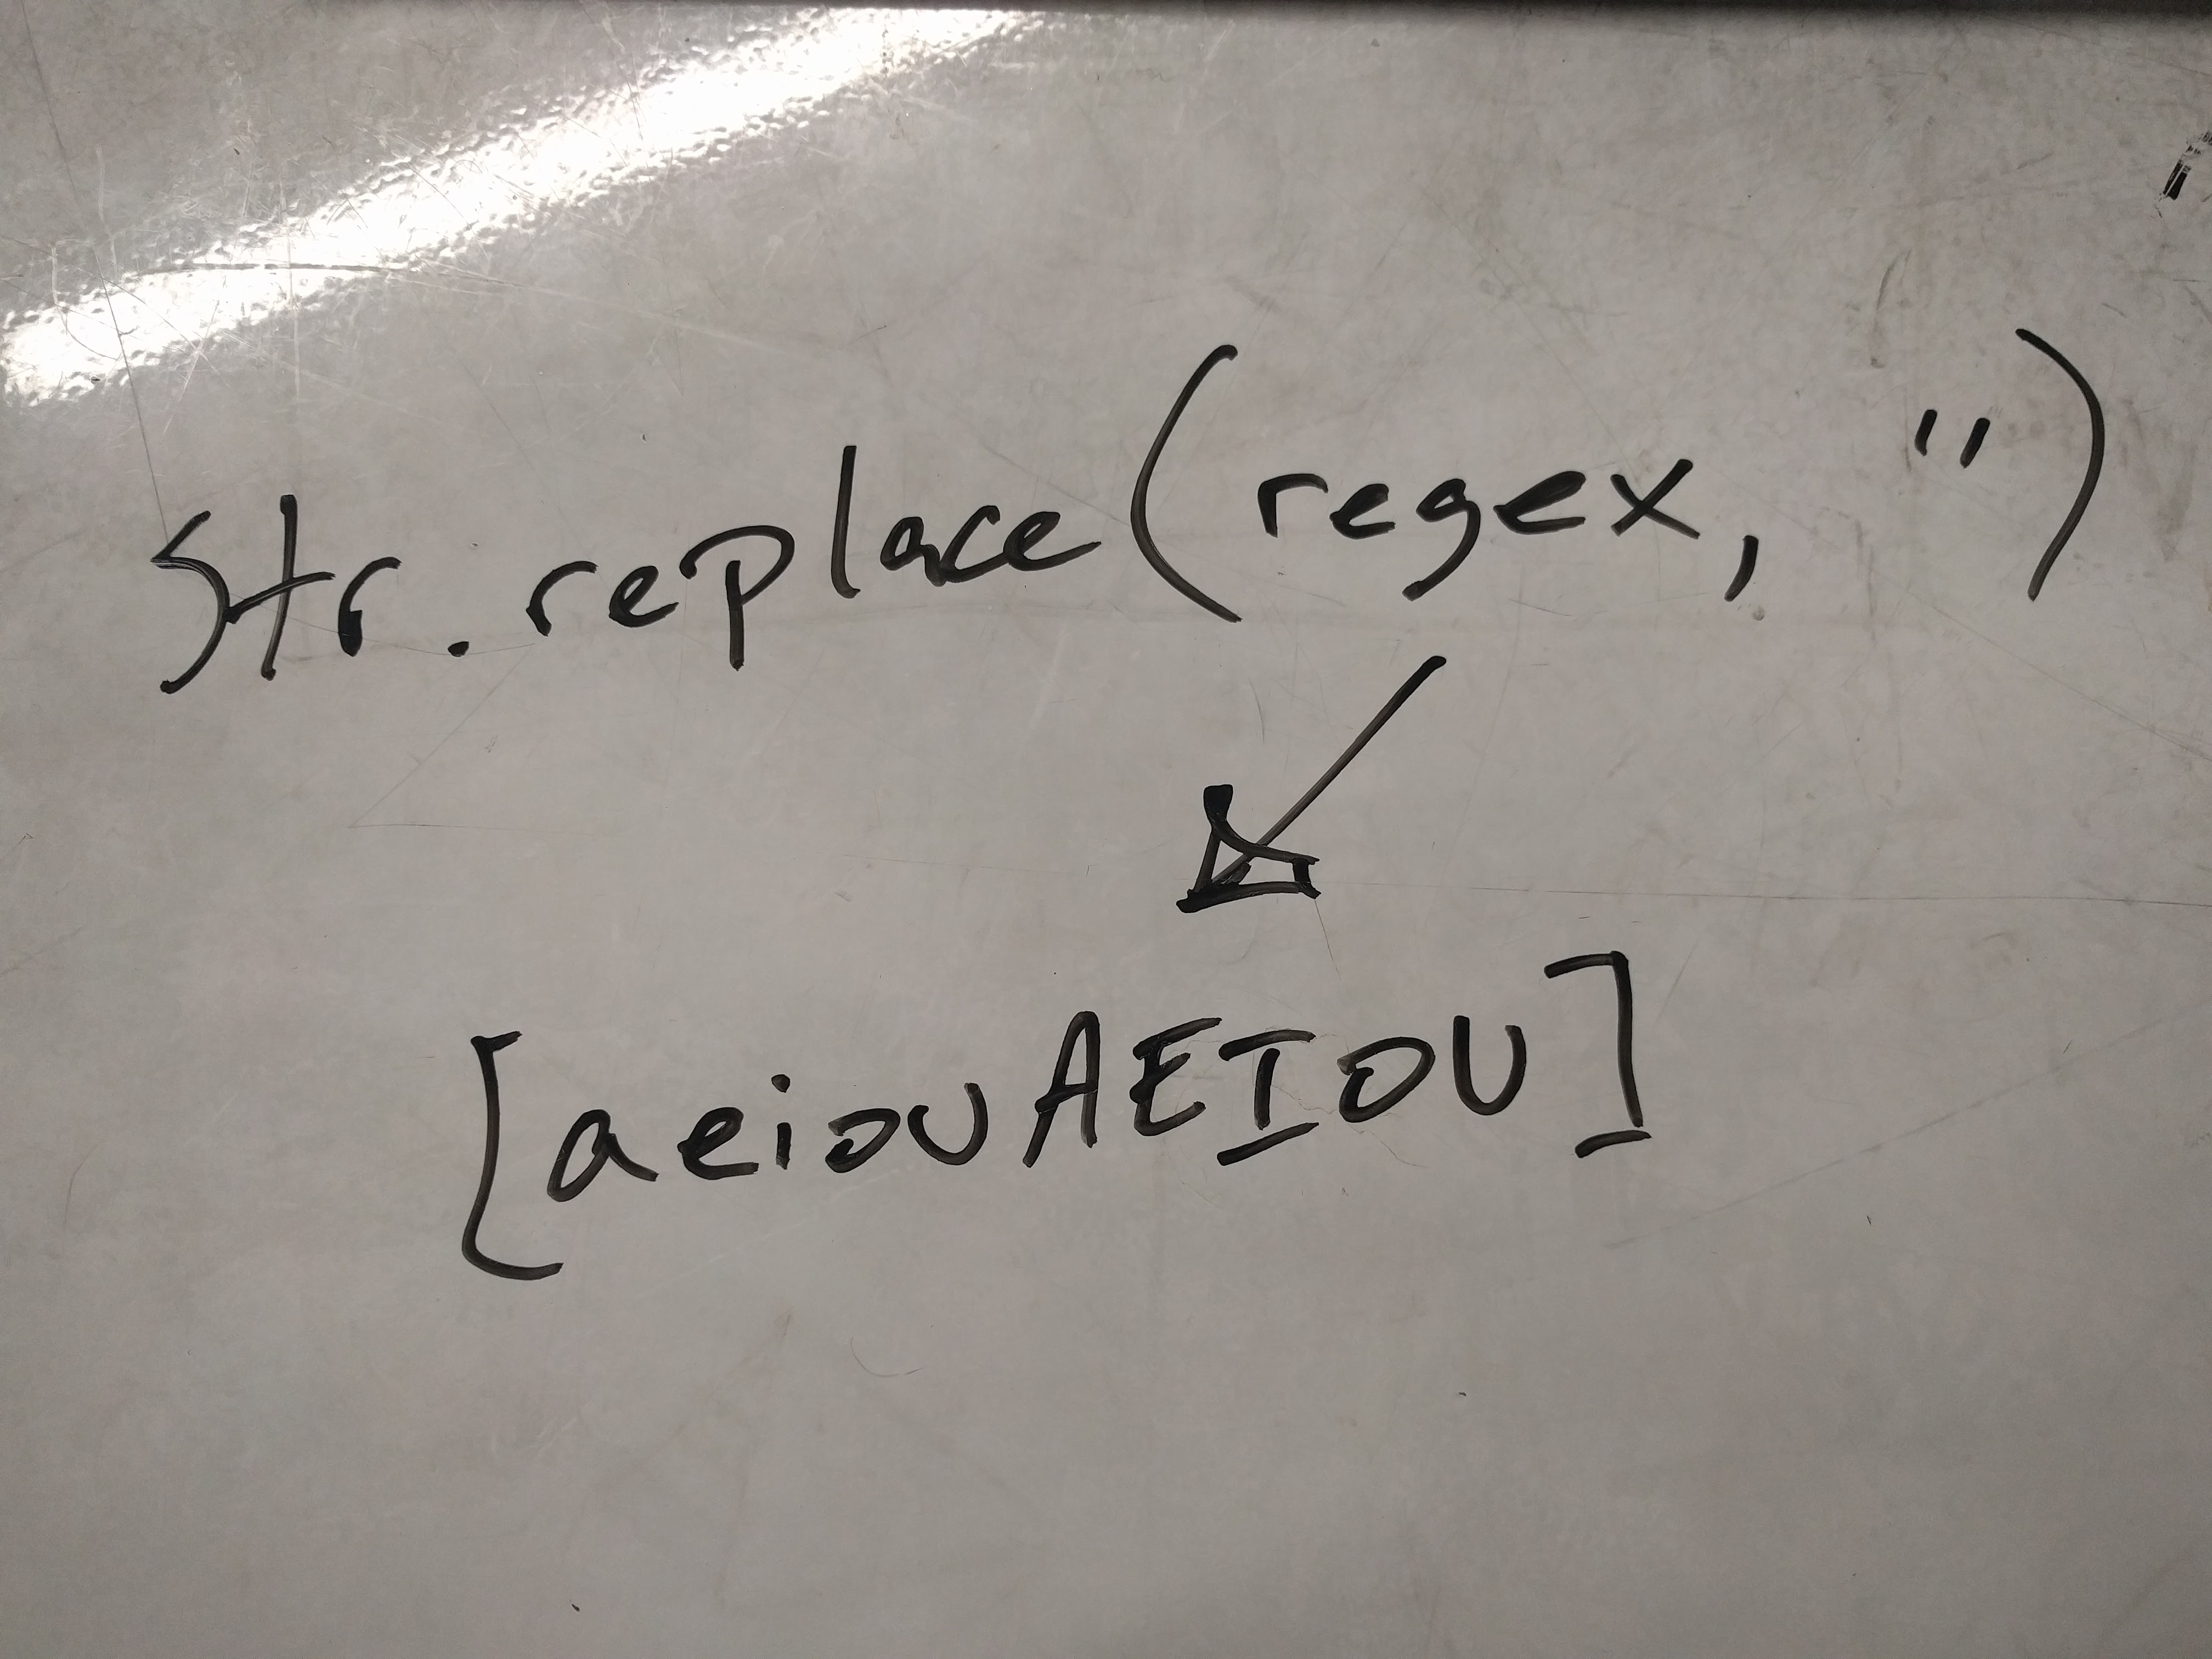 Str.replace(regex, ")
[aeiouAEIOU]